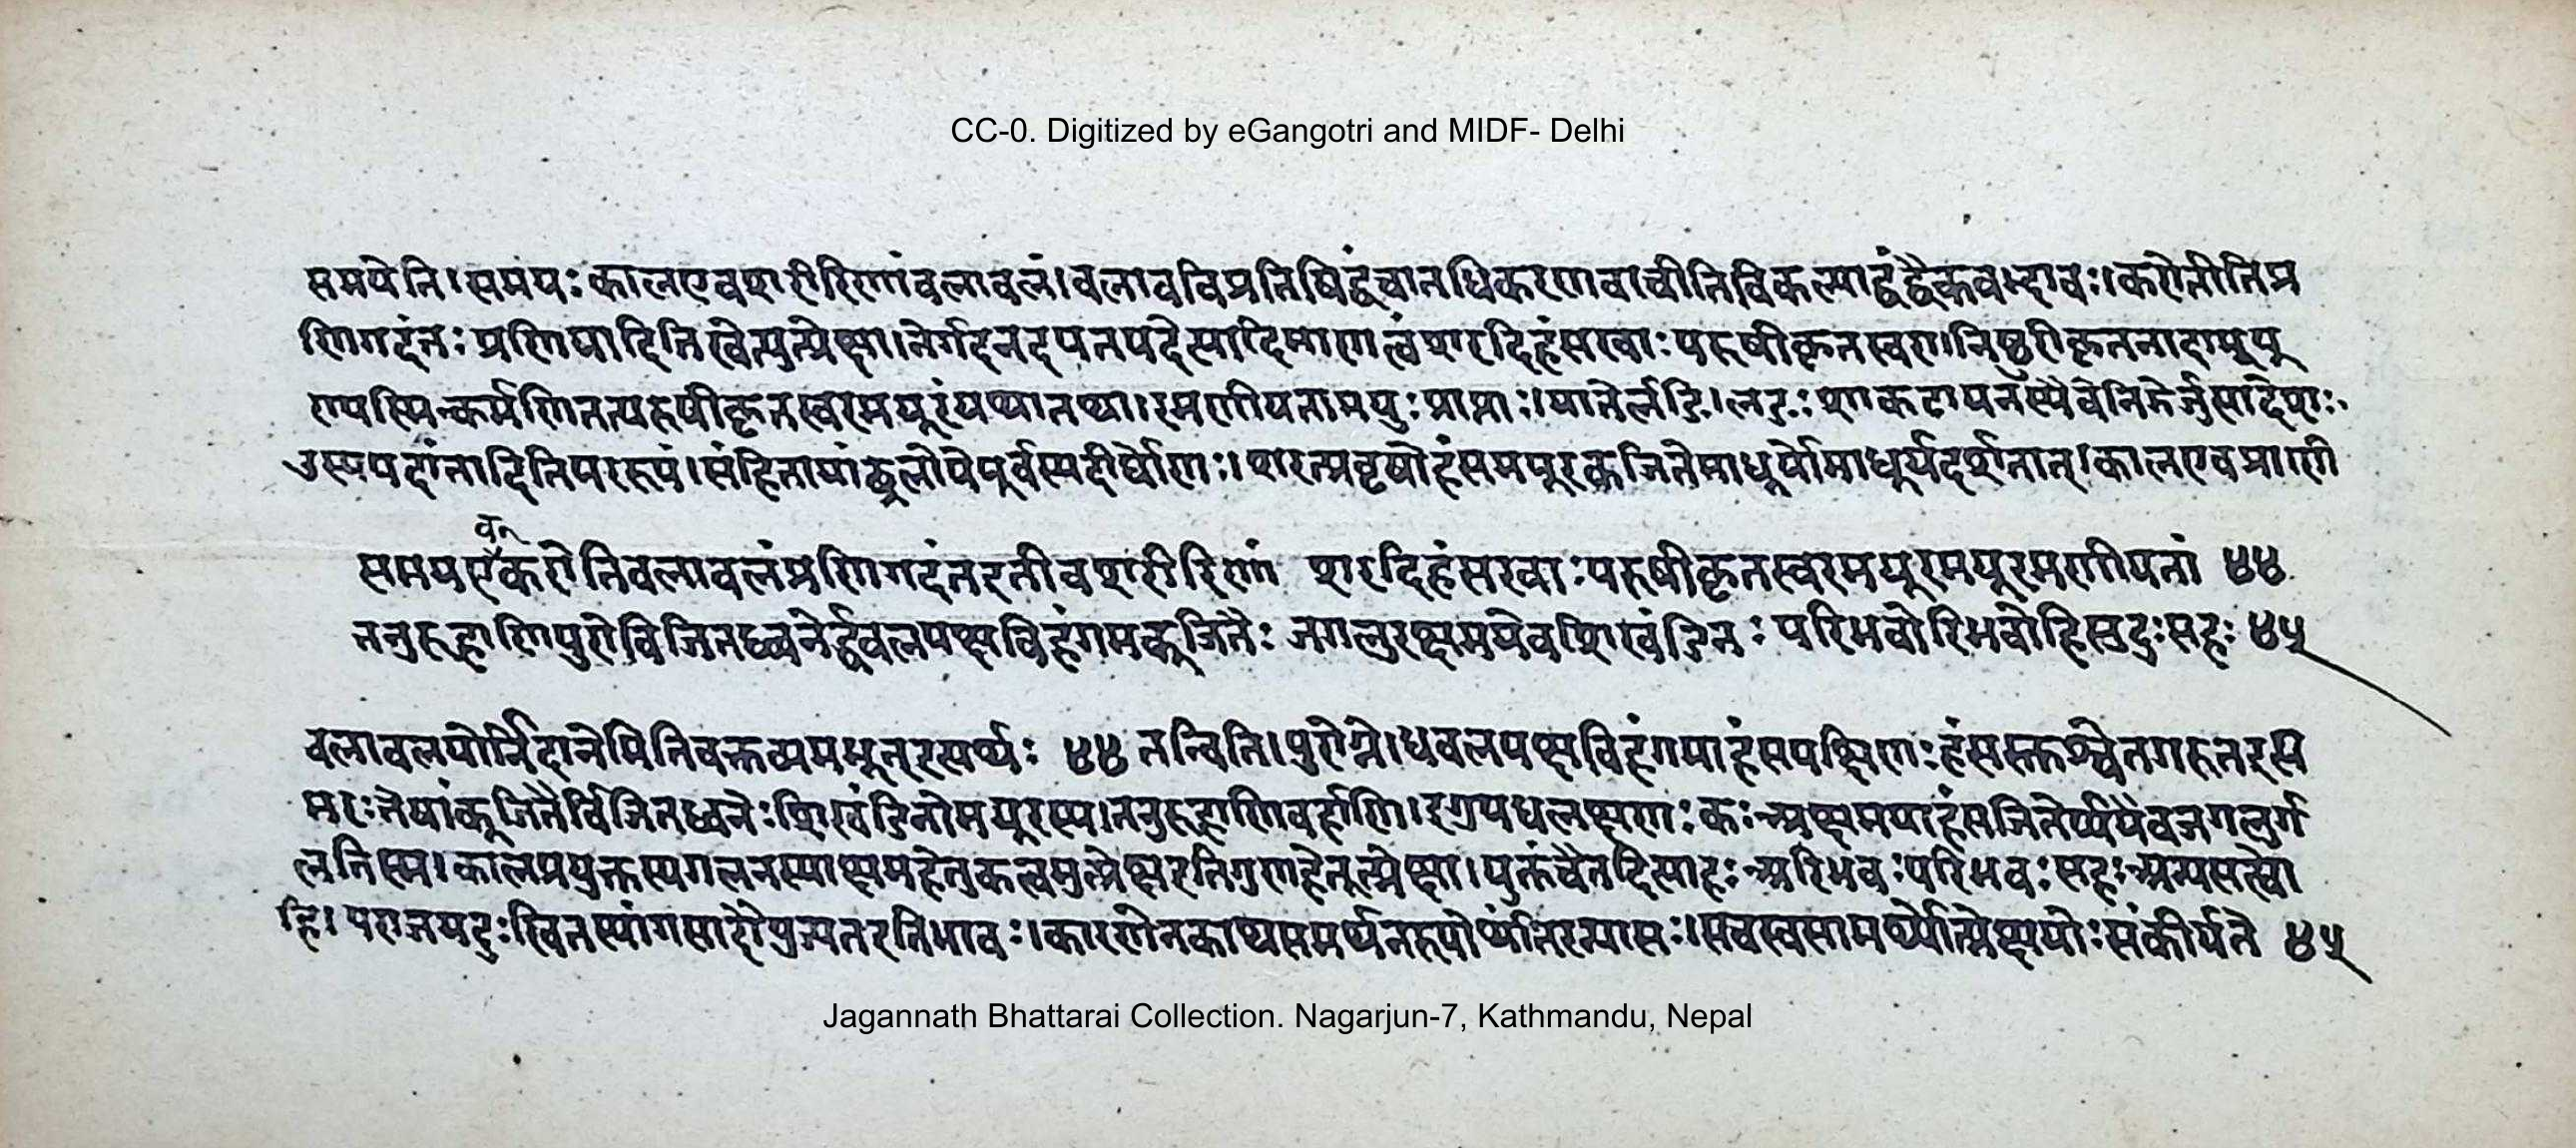 CC-0. Digitized by eGangotri and MIDF- Delhi
समयेति। समयः कालएवशरीरिणांवलावलं। वलाववि प्रतिषिद्धंचानधिकरणवाचीतिविकल्पाद्वंद्वैकवद्भावः। करोतीतिप्र
णिगदंतः प्रणि तिस्वेत्युत्प्रेक्षा। नेर्गदनद त्वंशरदिहंसरवाः परुषीकृतस्वरा। निष्ठुरीकृतनादामयू
परुषीकृतस्वरमयूरंयथातथा। रमणीयतामयुः प्राप्ताः। यातेर्लङि। लङः शाकटायनस्यैवेतिझेर्जुसादेशः
संहितायांढ्रलोपेपूर्वस्यदीर्घोणः। शरत्प्रवृषोर्हंसमयूरकूजिते दर्शनात्। कालएवप्राणी
व
समयएकरोतिवलावलंप्रणिगदंतरतीवशरीरिणां शरदिहंसरवाः परुषीकृतस्वरमयूरमयूरमणीयतां ४४
तनुरुहाणिपुरोविजितध्वनेर्द्धवलपक्षविहंगमकूजितैः जगलुरक्षमयेवशिखंडिनः परिभवोरिभवोहिसुदुःसहः ४५
वलावलयोर्निदानेमितिवक्तव्यम ४४ तन्विति। पुरोग्रे। धवलपक्षविहंगमाहंसपक्षिणः हंसस्तुश्वेतगरुत
मरः तेषांकूजितैर्विजितध्वनेः शिखंडिनोमयूरस्य। तनुरुहाणिवर्हाणि। कः अक्षमयाहं जगलुर्ग
लतिस्म। कालप्रयुक्तस्यगलनस्याक्षमहेतुकत्वमुत्प्रेक्षरतिगुणहेतूत्प्रेक्षा। युक्तंचैतदित्याहः अरिभवः परिभवः सहः
हि। पराजयदुः भावः। कारणेनकार्यसमर्थनरुपोर्थांतरन्यासः। सचस्वसाम संकीर्यते ४५
Jagannath Bhattarai Collection. Nagarjun-7, Kathmandu, Nepal